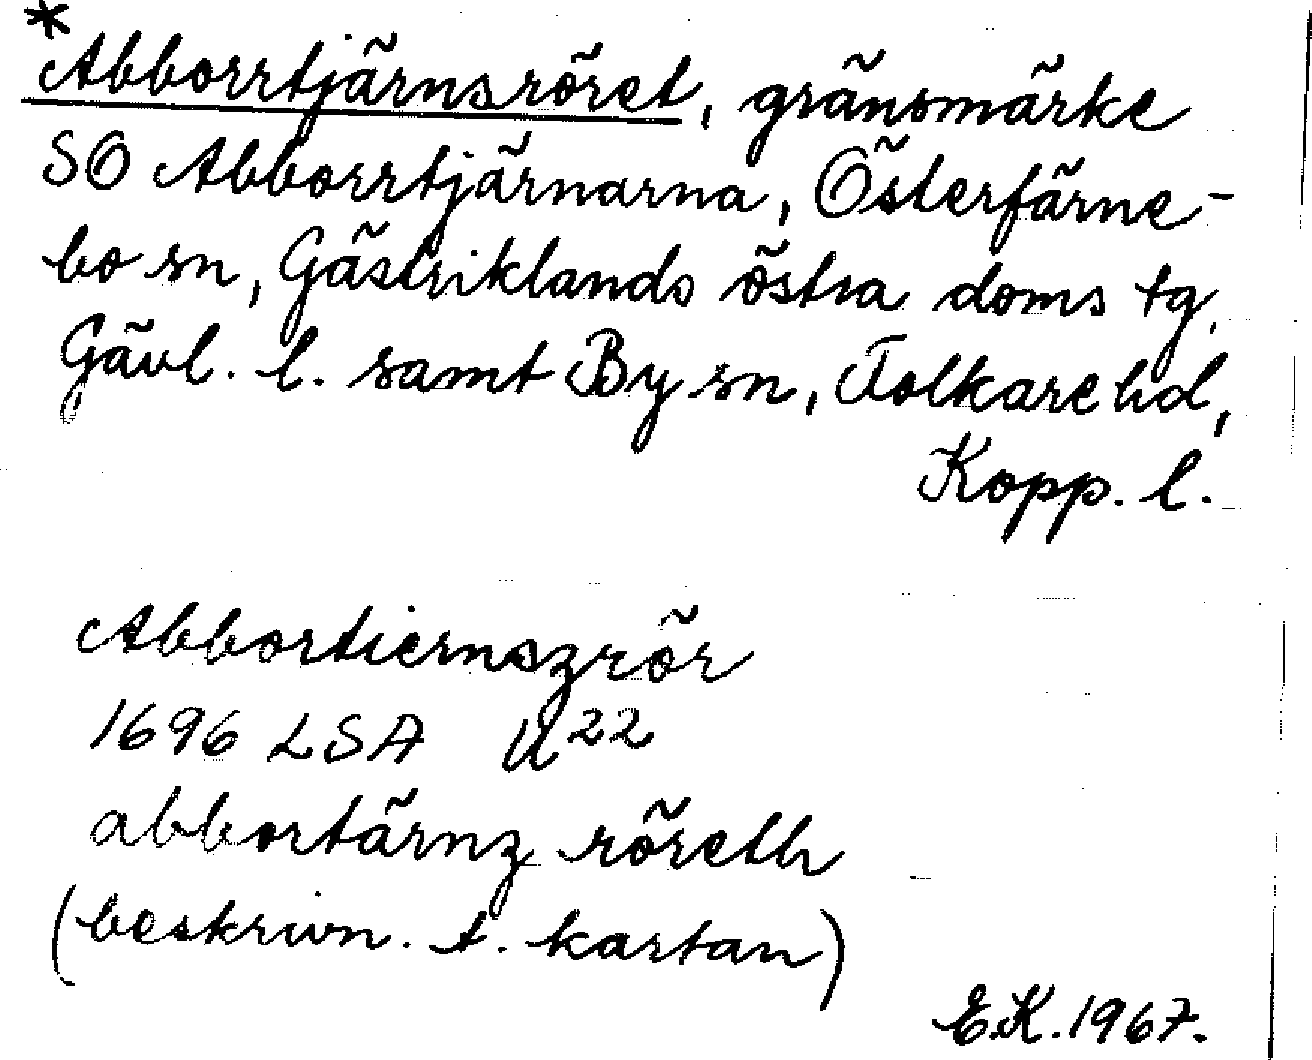 *Abborrtjärnsröret, gränsmärke
SO Abborrtjärnarna, Österfärne-
bo sn, Gästriklands östra doms tg,
Gävl. l. samt By sn, Folkare hd,
Kopp. l.
Abbortiernszrör
1696 LSA U22
abbortärnz röreth
(beskrivn. t. kartan)
E.K. 1967.